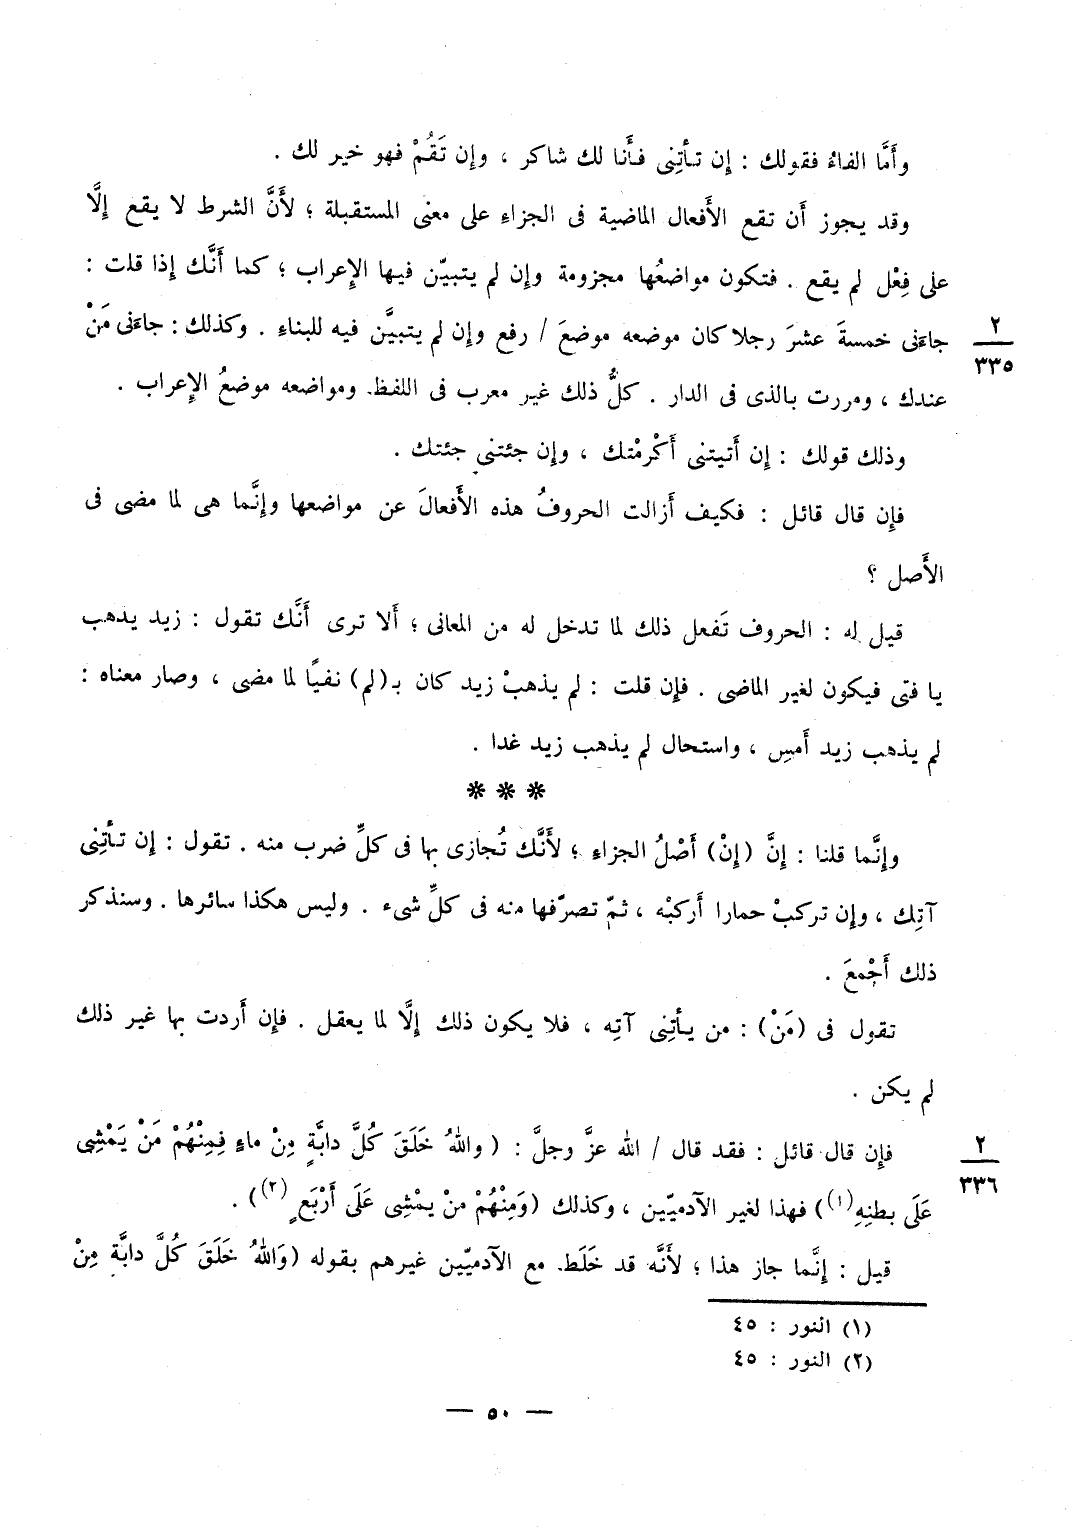 وأَمَّا الفاءُ فقولك : إِن تأْتِنى فأَنا لك شاكر ، وإِن تَقُمْ فهو خير لك .
وقد يجوز أَن تقع الأَفعال الماضية فى الجزاءِ على معنى المستقبلة ؛ لأَنَّ الشرط لا يقع إِلَّا
على فِعْل لم يقع . فتكون مواضعُها مجزومة وإِن لم يتبيّن فيها الإِعراب ؛ كما أَنَّك إِذا قلت :
جاءَنى خمسةَ عشرَ رجلا كان موضعه موضعَ / رفع وإِن لم يتبيَّن فيه للبناءِ . وكذلك : جاءَنى مَنْ
٢
٣٣٥
عندك ، ومررت بالذى فى الدار . كلُّ ذلك غير معرب فى اللفظ. ومواضعه موضعُ الإِعراب .
وذلك قولك : إِن أَتيتنى أَكْرمْتك ، وإِن جئتنى جئتك .
فإِن قال قائل : فكيف أَزالت الحروفُ هذه الأَفعالَ عن مواضعها وإِنَّما هى لما مضى فى
الأَصل ؟
قيل له : الحروف تَفعل ذلك لما تدخل له من المعانى ؛ أَلا ترى أَنَّك تقول : زيد يذهب
يا فتى فيكون لغير الماضى . فإِن قلت : لم يذهبْ زيد كان بـ(لم) نفيًا لما مضى ، وصار معناه :
لم يذهب زيد أَمسِ ، واستحال لم يذهب زيد غدا .
❋ ❋ ❋
وإِنَّما قلنا : إِنَّ (إِنْ) أَصْلُ الجزاءِ ؛ لأَنَّك تُجازى بها فى كلِّ ضرب منه . تقول : إِن تأْتِنِى
آتِك ، وإِن تركبْ حمارا أَركبْه ، ثمّ تصرّفها منه فى كلِّ شىء . وليس هكذا سائرها . وسنذكر
ذلك أَجْمعَ .
تقول فى (مَنْ) : من يأْتِنِى آتِه ، فلا يكون ذلك إِلَّا لما يعقل . فإِن أَردت بها غير ذلك
لم يكن .
فإِن قال قائل : فقد قال / الله عزَّ وجلَّ : ( واللهُ خَلَقَ كُلَّ دابَّةٍ مِنْ ماءٍ فمِنْهُمْ مَنْ يَمْشِى
٢
٣٣٦
عَلَى بطنِهِ(١)) فهذا لغير الآدميّين ، وكذلك (وَمِنْهُمْ منْ يمْشِى عَلَى أَرْبَعٍ(٢)) .
قيل : إِنَّما جاز هذا ؛ لأَنَّه قد خَلَط. مع الآدميّين غيرهم بقوله (وَاللهُ خَلَقَ كُلَّ دابَّةٍ مِنْ
(١) النور : ٤٥
(٢) النور : ٤٥
— ٥٠ —